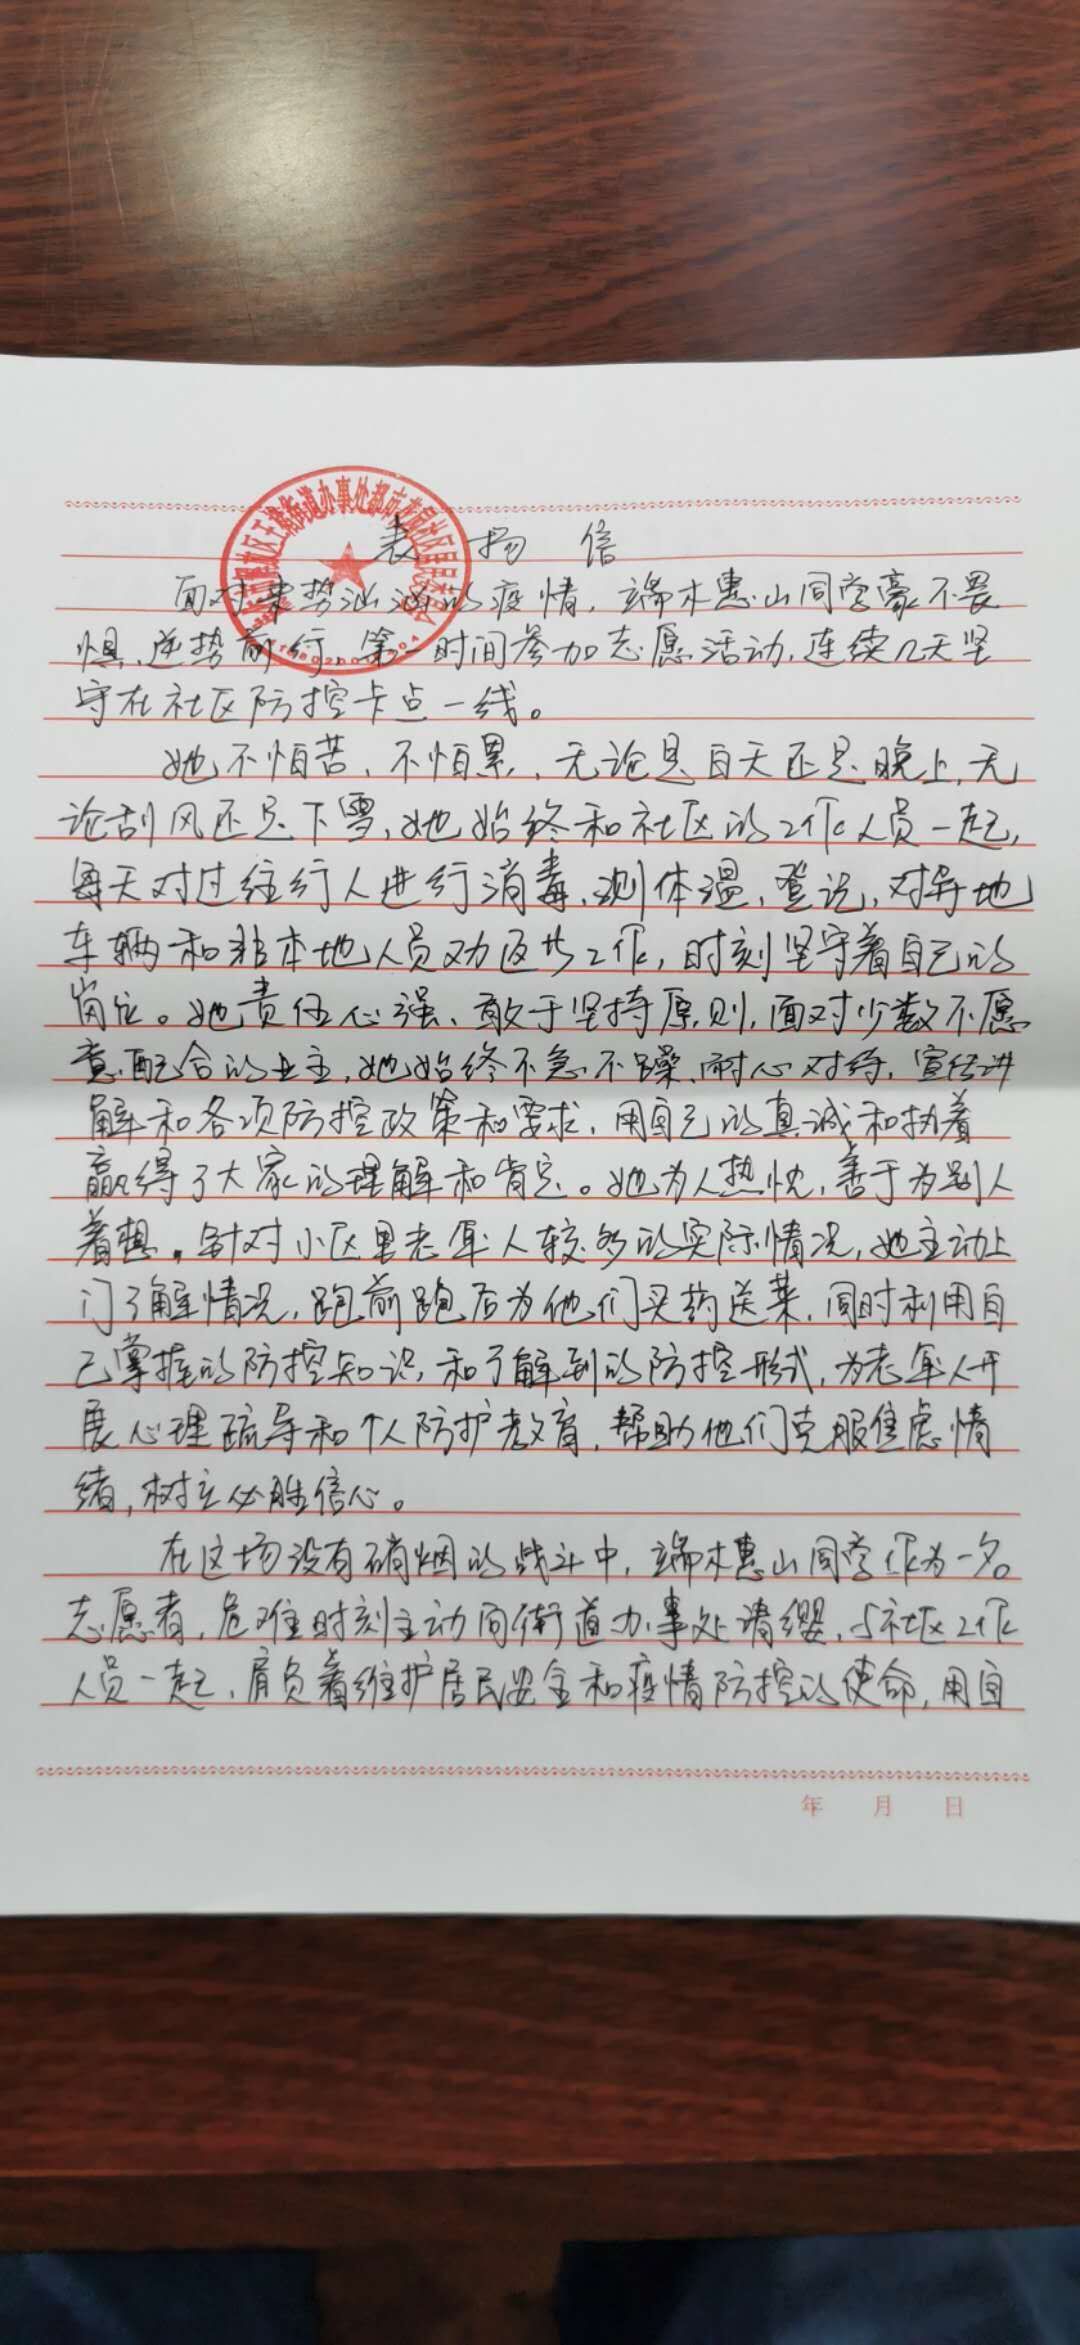 表扬信
面对来势汹汹的疫情，端木惠山同学豪不畏
惧、逆势前行，第一时间参加志愿活动，连续几天坚
守在社区防控卡点一线。
她不怕苦、不怕累、无论是白天还是晚上，无
论刮风还是下雪，她始终和社区的工作人员一起，
每天对过往行人进行消毒、测体温、登记，对异地
车辆和非本地人员劝返等工作，时刻坚守着自己的
岗位。她责任心强、敢于坚持原则，面对少数不愿
意配合的业主，她始终不急不躁、耐心对待，宣传讲
解和各项防控政策和要求，用自己的真诚和执着
赢得了大家的理解和肯定。她为人热忱，善于为别人
着想。针对小区里老年人较多的实际情况，她主动上
门了解情况，跑前跑后为他们买药送菜，同时利用自
己掌握的防控知识，和了解到的防控形式，为老年人开
展心理疏导和个人防护教育，帮助他们克服焦虑情
绪，树立必胜信心。
在这场没有硝烟的战斗中，端木惠山同学作为一名
志愿者，危难时刻主动向街道办事处请缨，与社区工作
人员一起，肩负着维护居民安全和疫情防控的使命，用自
年 月 日